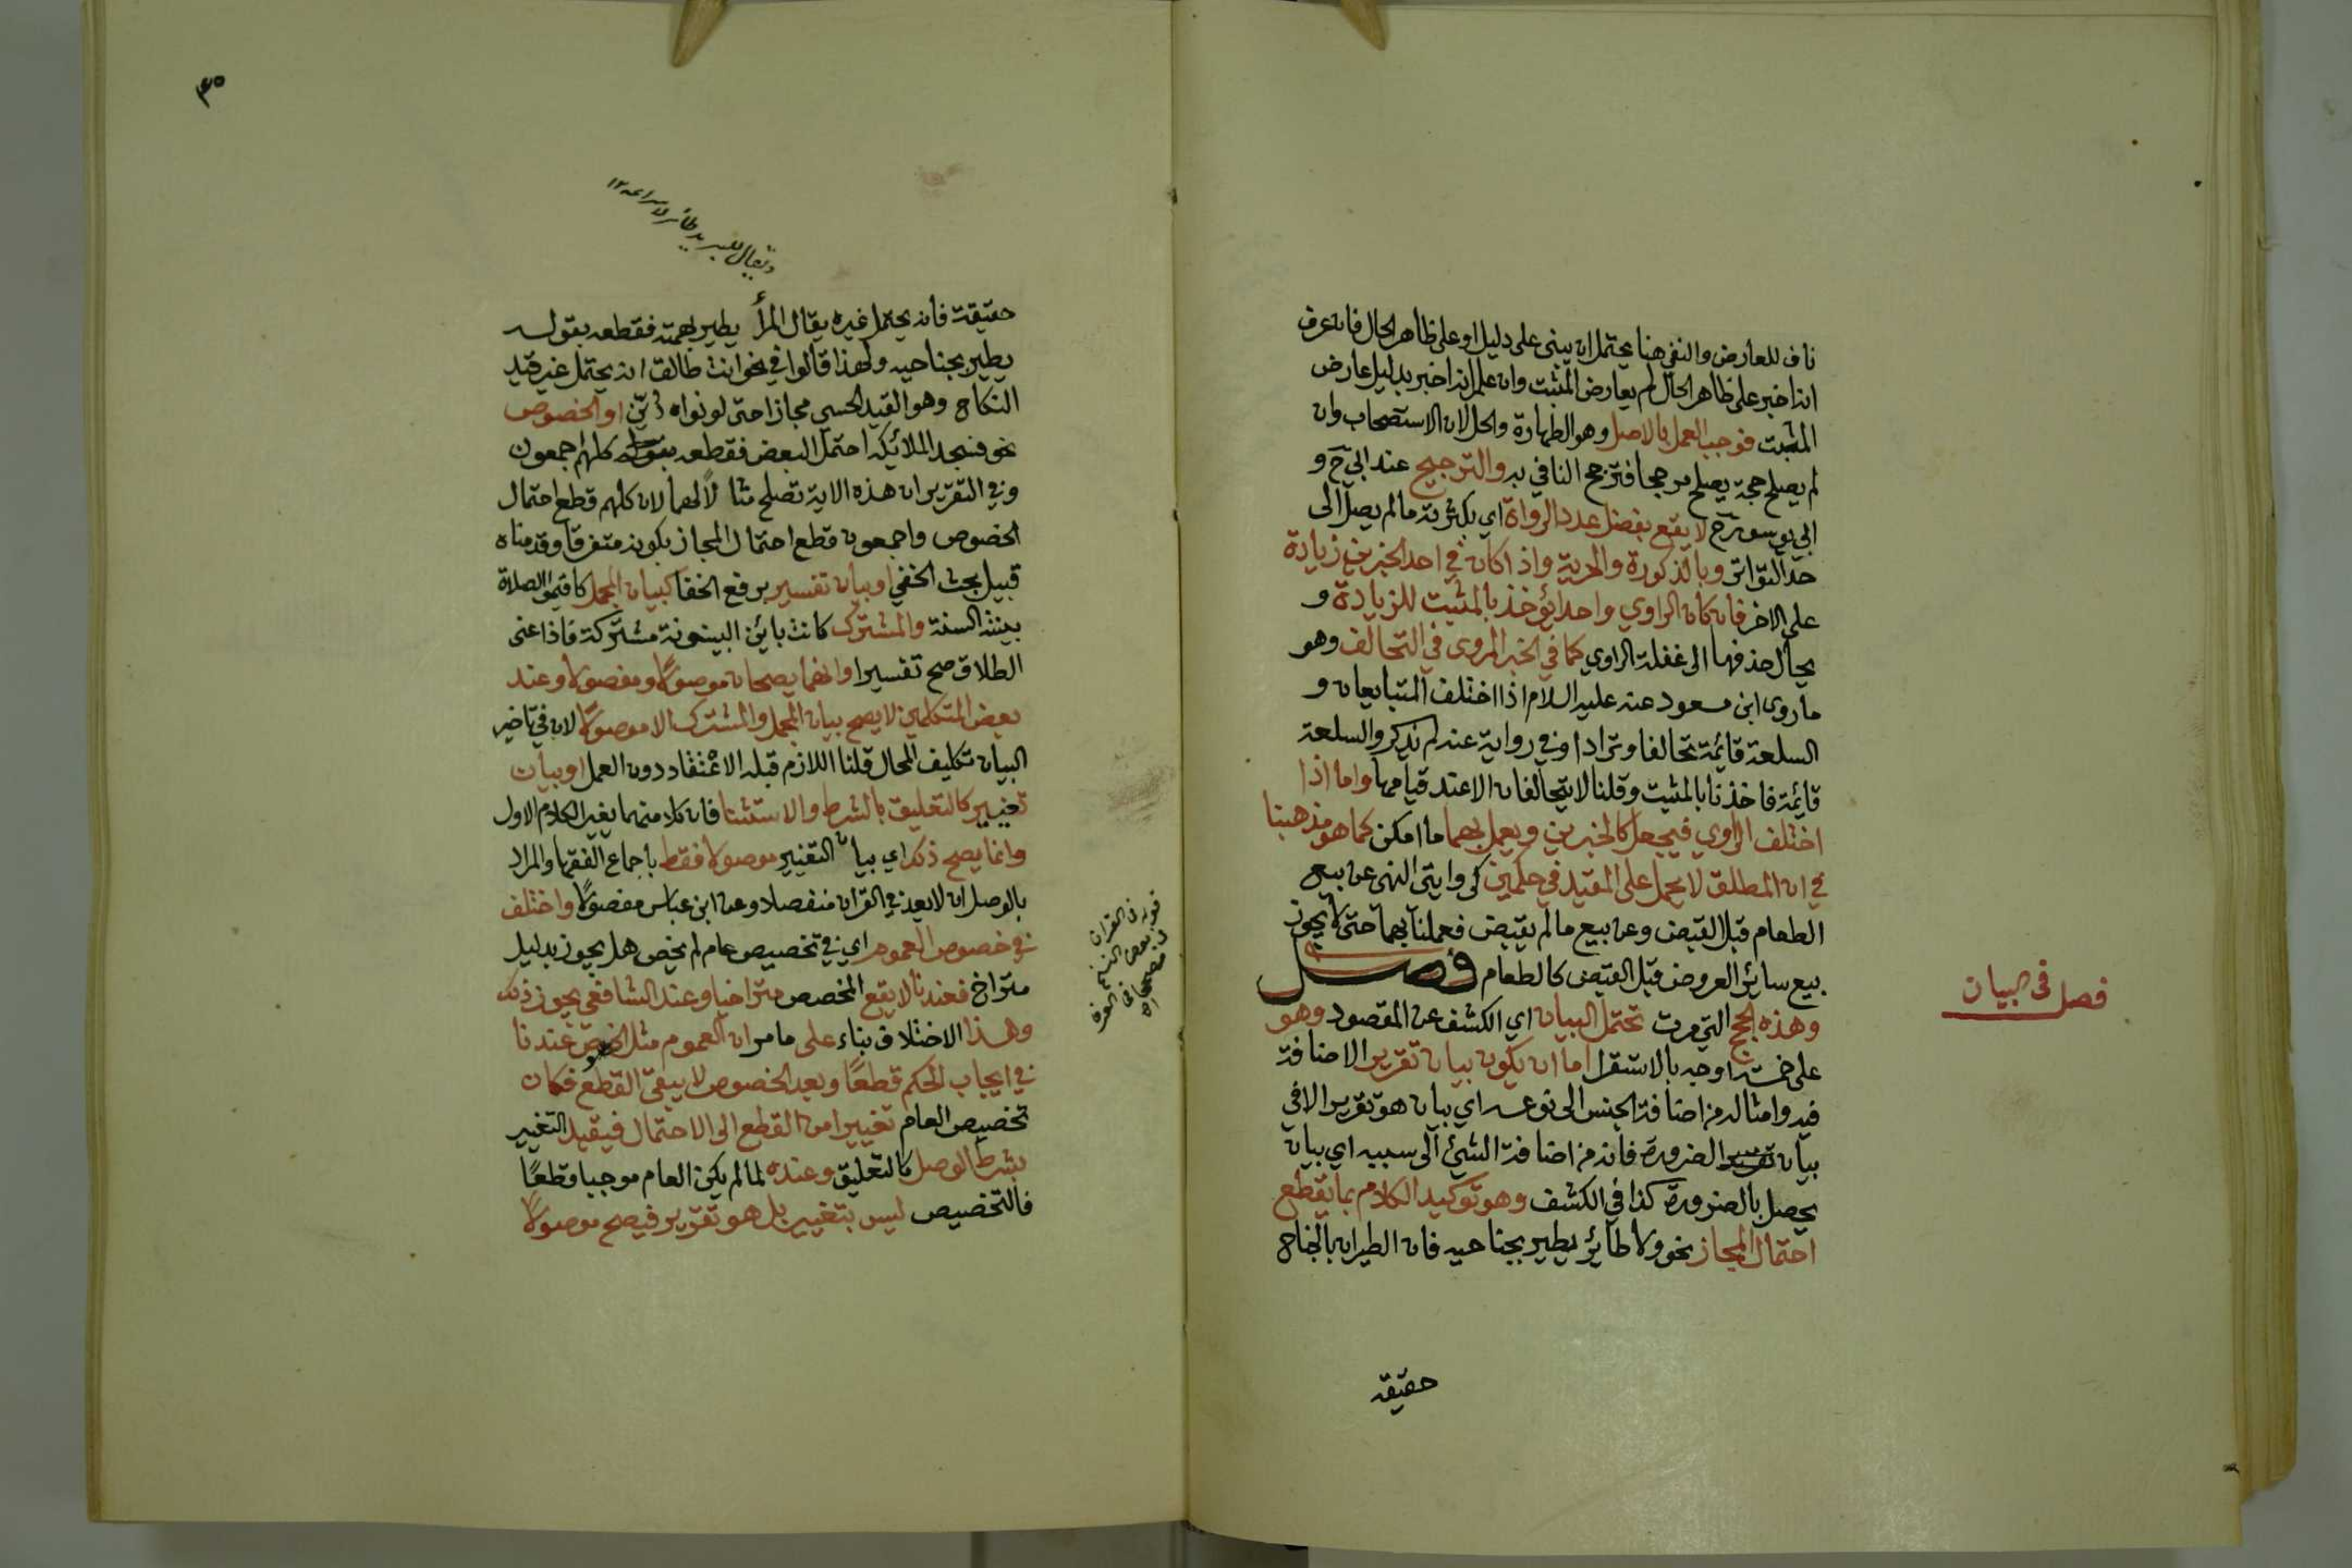 ناف للعارض والنفي هنا يحتمل ان يبنى على دليل او على ظاهر الحال فان عرف
انه اخبر على ظاهر الحال لم يعارض المثبت وان علم انه اخبر بدليل عارض
المثبت فوجب العمل بالاصل وهو الطهارة والحل لان الاستصحاب وان
لم يصلح حجة يصلح مرجحا فترجح النافي به والترجيح عند ابي ح و
ابي يوسف رح لا يقع بفضل عدد الرواة اي بكثرته ما لم يصل الى
حد التواتر وبالذكورة والحرية واذا كان في احد الخبرين زيادة
على الاخر فان كان الراوي واحدا يؤخذ بالمثبت للزيادة و
يحال حذفها الى غفلة الراوي كما في الخبر المروى في التحالف وهو
ما روى ابن مسعود عنه عليه السلام اذا اختلف المتبايعان و
السلعة قائمة تحالفا وترادا وفي رواية عنه لم يذكر والسلعة
قائمة فاخذنا بالمثبت وقلنا لا يتحالفان الا عند قيامها واما اذا
اختلف الراوي فيجعل كالخبرين ويعمل بهما ما امكن كما هو مذهبنا
في ان المطلق لا يحمل على المقيد في حكمين كروايتي النهي عن بيع
الطعام قبل القبض وعن بيع ما لم يقبض فعملنا بهما حتى لا يجوز
بيع سائر العروض قبل القبض كالطعام فصل
وهذه الحجج التي مرت تحتمل البيان اي الكشف عن المقصود وهو
على خمسة اوجه بالاستقرا اما ان يكون بيان تقرير الاضافة
فيه وامثاله من اضافة الجنس الى نوعه اي بيان هو تقرير الا في
بيان الضرورة فانه من اضافة الشئ الى سببه اي بيان
يحصل بالضرورة كذا في الكشف وهو توكيد الكلام بما يقطع
احتمال المجاز نحو ولا طائر يطير بجناحيه فان الطيران بالجناح
حقيقة
فصل في البيان
٣٥
ويقال للبريد طائر لاسراعه ١٢
حقيقة فانه يحتمل غيره يقال المرأ يطير بهمته فقطعه بقوله
يطير بجناحيه ولهذا قالوا في نحو انت طالق انه يحتمل غير قيد
النكاح وهو القيد الحسي مجازا حتى لو نواه دين او الخصوص
نحو فسجد الملائكة احتمل البعض فقطعه بقوله كلهم اجمعون
وفي التقرير ان هذه الاية تصلح مثالا لهما لان كلهم قطع احتمال
الخصوص واجمعون قطع احتمال المجاز بكونه متفرقا وقدمناه
قبيل بحث الخفي او بيان تفسير برفع الخفا كبيان المجمل كاقيموا الصلاة
بينته السنة والمشترك كانت بائن البينونة مشتركة فاذا عنى
الطلاق صح تفسيرا وانهما يصحان موصولا ومفصولا وعند
بعض المتكلمين لا يصح بيان المجمل والمشترك الا موصولا لان في تاخير
البيان تكليف المحال قلنا اللازم قبله الاعتقاد دون العمل او بيان
تغيير كالتعليق بالشرط والاستثنا فان كلا منهما يغير الكلام الاول
وانما يصح ذلك اي بيان التغيير موصولا فقط باجماع الفقهاء والمراد
بالوصل ان لا يعد في القران منفصلا وعن ابن عباس مفصولا واختلف
في خصوص العموم اي في تخصيص عام لم يخص هل يجوز بدليل
متراخ فعندنا لا يقع المخصص متراخيا وعند الشافعي يجوز ذلك
وهذا الاختلاف بناء على ما مر ان العموم مثل الخصوص عندنا
في ايجاب الحكم قطعا وبعد الخصوص لا يبقى القطع فكان
تخصيص العام تغييرا من القطع الى الاحتمال فيقيد التغيير
بشرط الوصل كالتعليق وعنده لما لم يكن العام موجبا قطعا
فالتخصيص ليس بتغيير بل هو تقرير فيصح موصولا